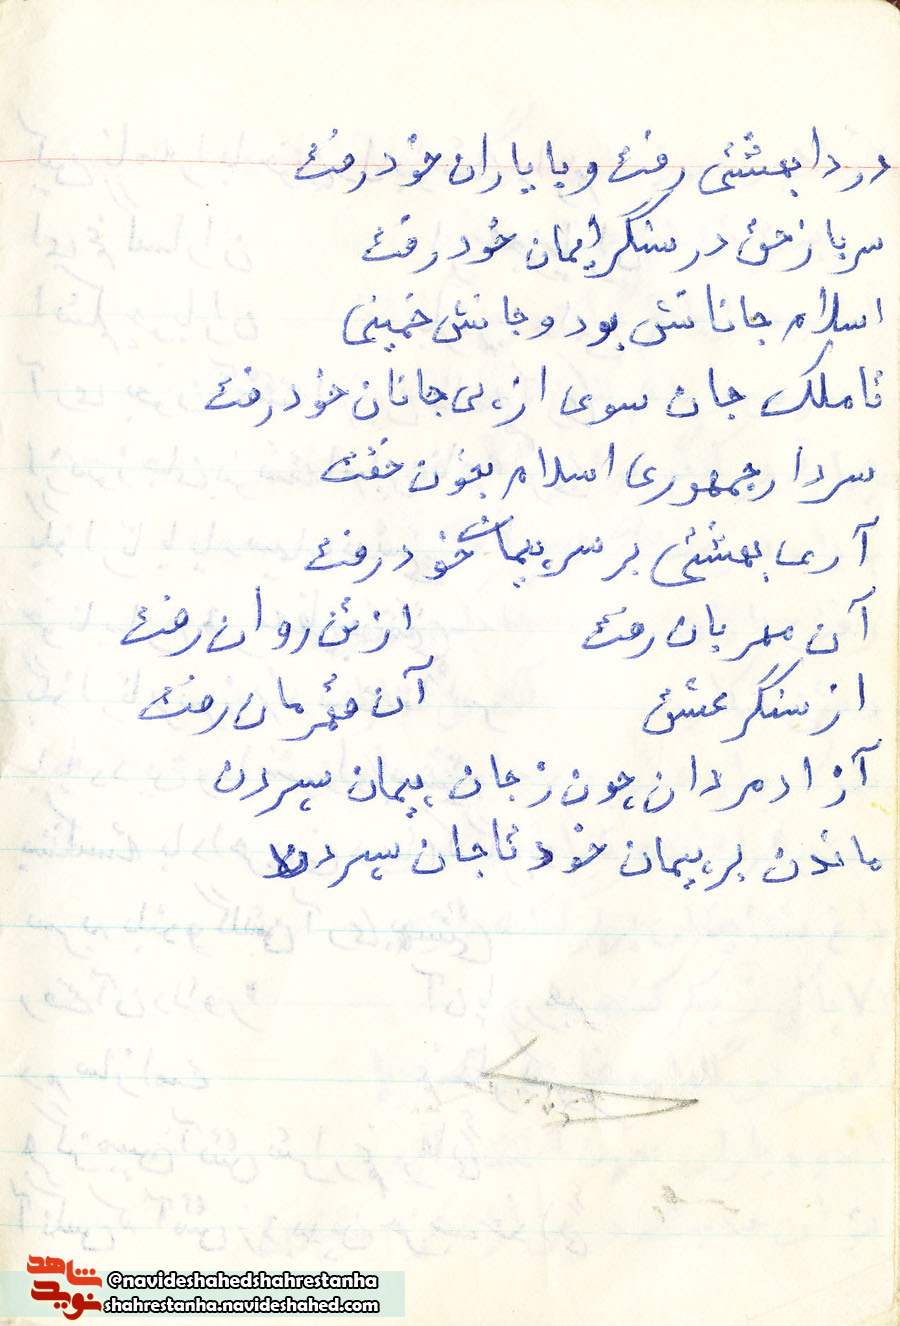 دردا بهشتی رفت و با یاران خود رفت
سرباز حق در سنگر ایمان خود رفت
اسلام جانانش بود و جانش خمینی
تا ملک جان سوی از پی جانان خود رفت
سردار جمهوری اسلام بخون خفت
آری بهشتی بر سر پیمان خود رفت
آن مهربان رفت از تن روان رفت
از سنگر عشق آن قهرمان رفت
آزاد مردان چون ز جان پیمان سپردن
ماندن بر پیمان خود تا جان سپردن
شاهد
نوید
@navideshahedshahrestanha
shahrestanha.navideshahed.com